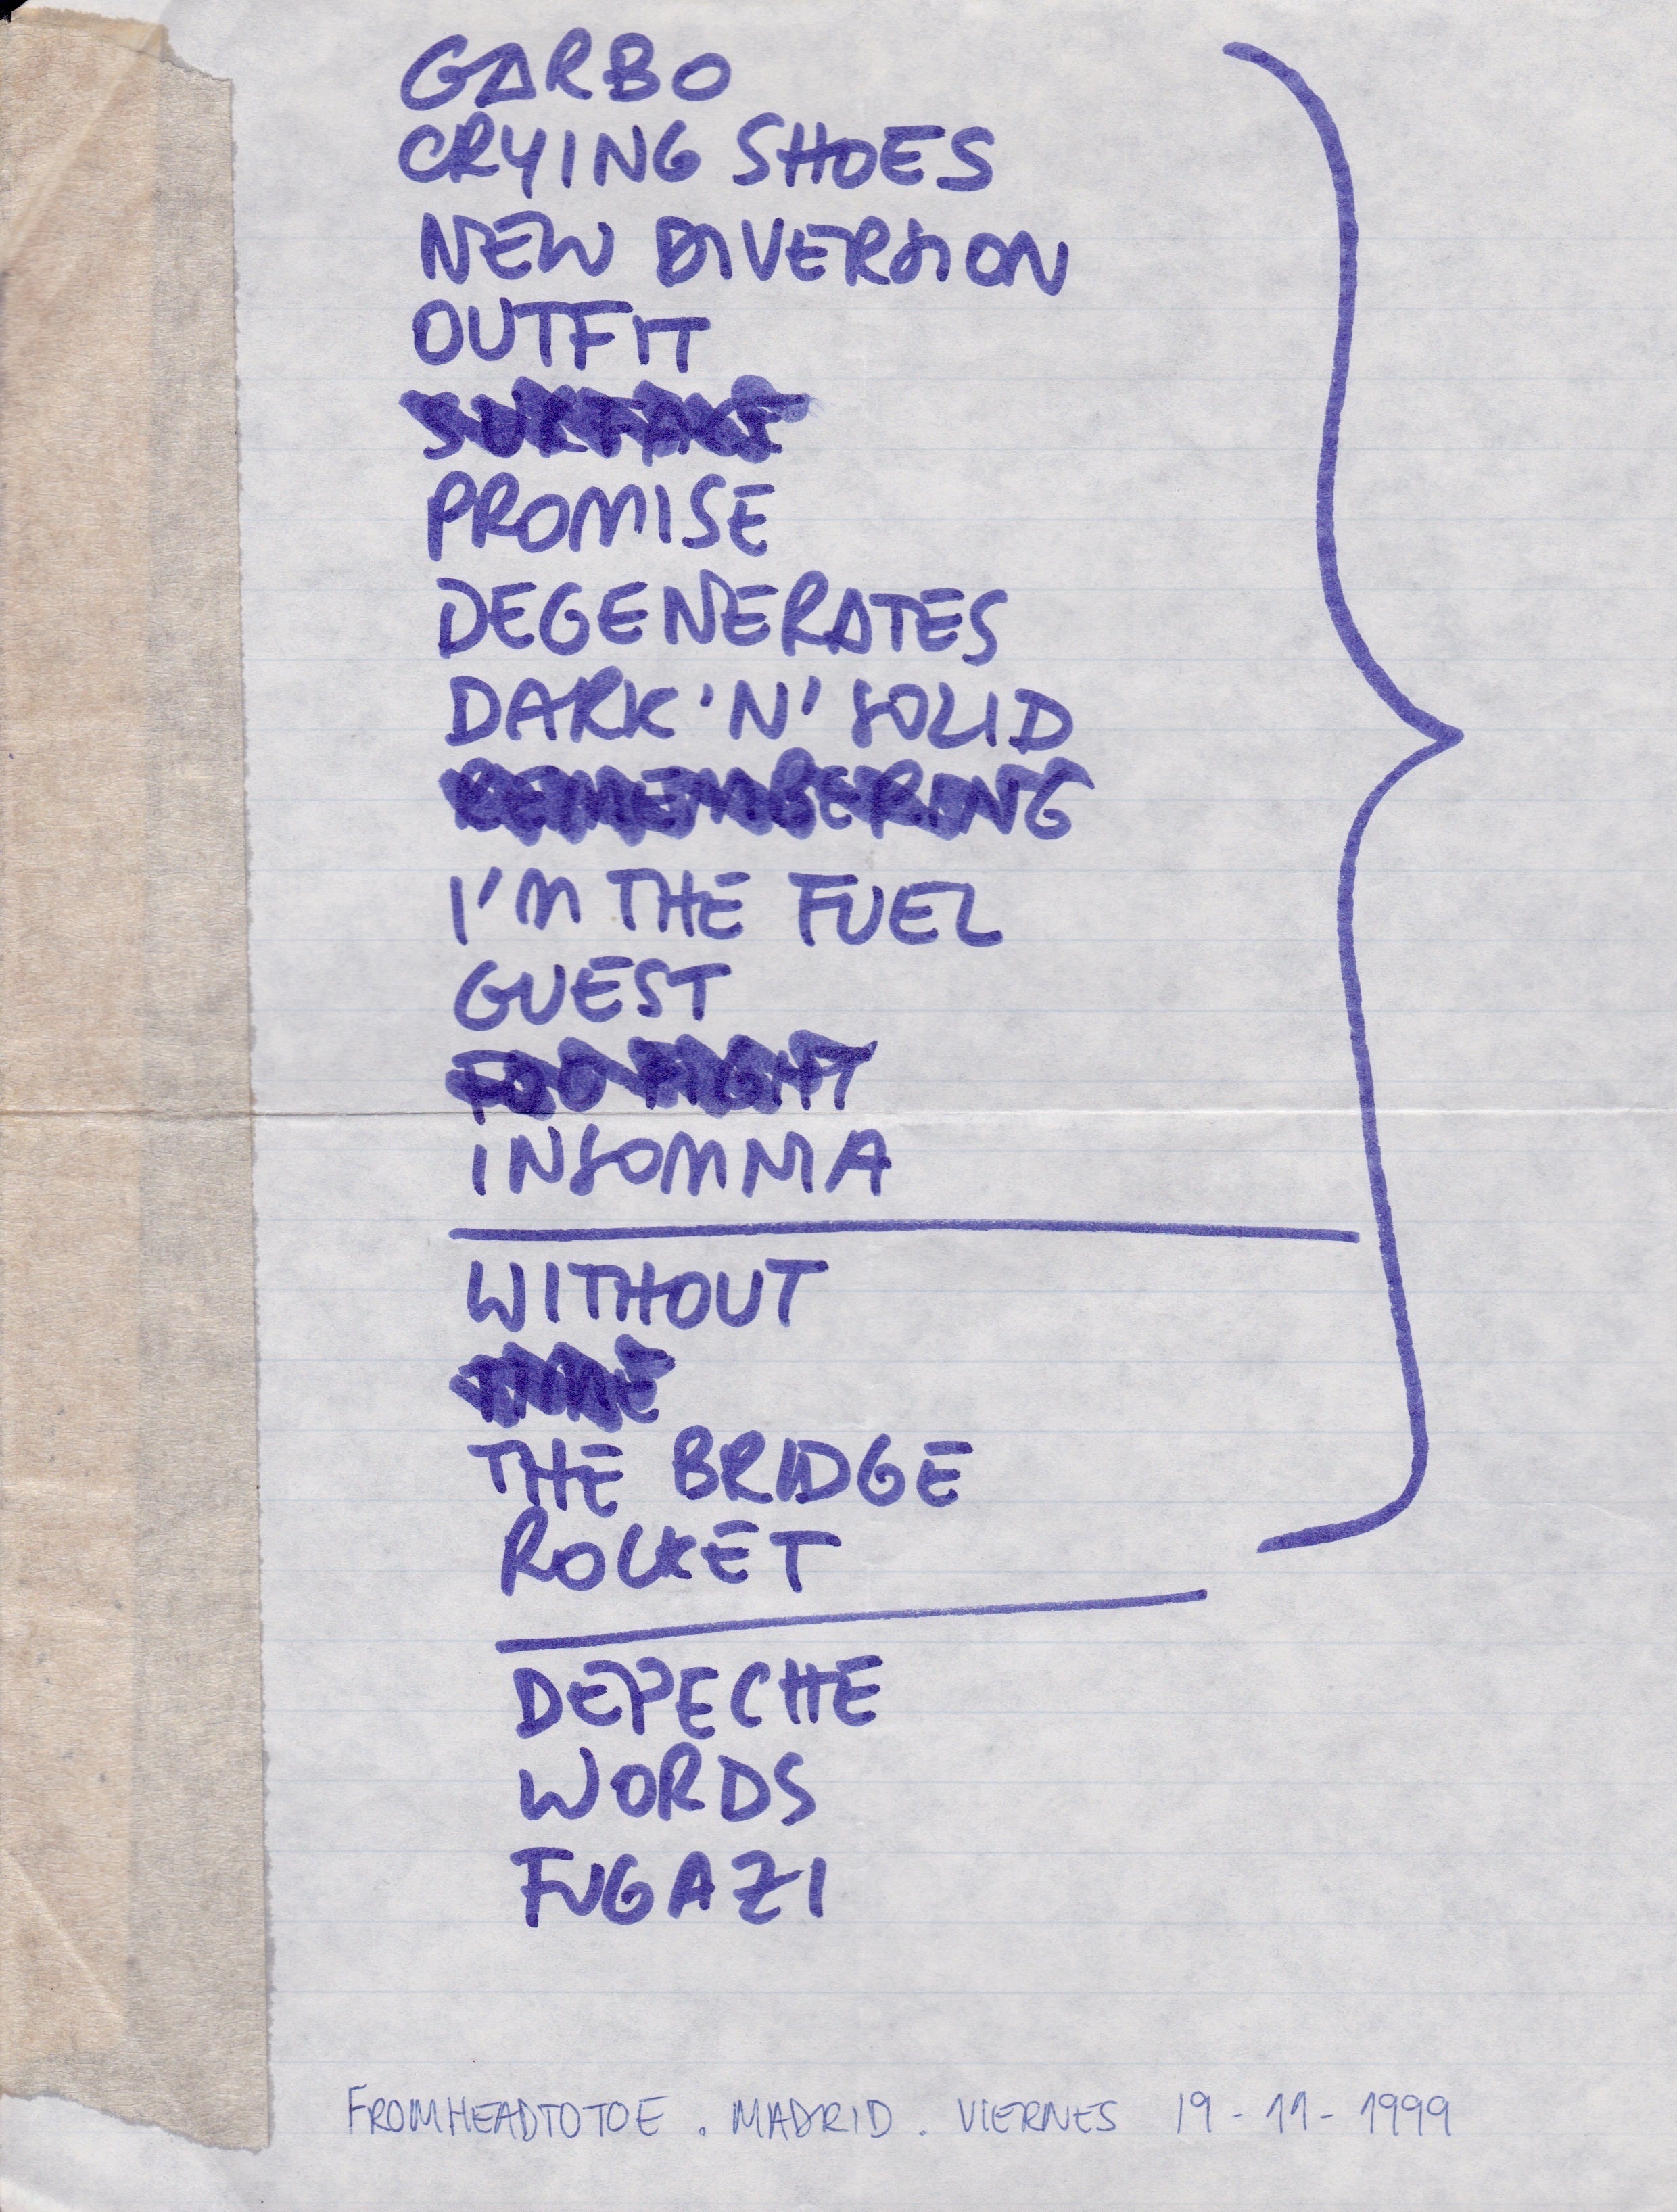 GARBO
CRYING SHOES
NEW DIVERSION
OUTFIT
SURFACE
PROMISE
DEGENERATES
DARK 'N' SOLID
REMEMBERING
I'M THE FUEL
GUEST
FOO FIGHT
INSOMNIA
WITHOUT
TIME
THE BRIDGE
ROCKET
DEPECHE
WORDS
FUGAZI
FROMHEADTOTOE . MADRID . VIERNES 19-11-1999